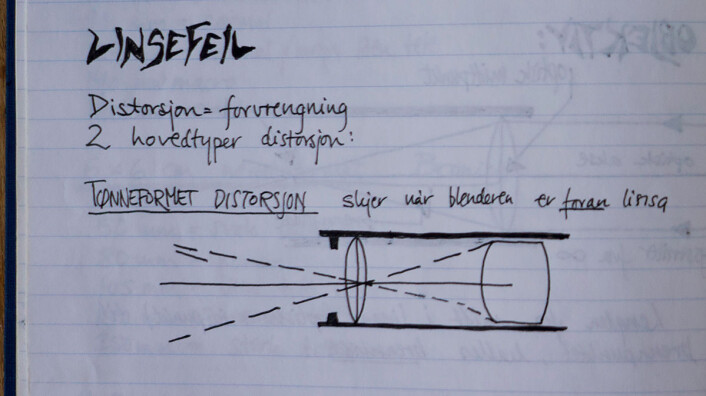 LINSEFEIL
Distorsjon = forvrengning
2 hovedtyper distorsjon:
TØNNEFORMET DISTORSJON skjer når blenderen er foran linsa
OBJEKTIV: